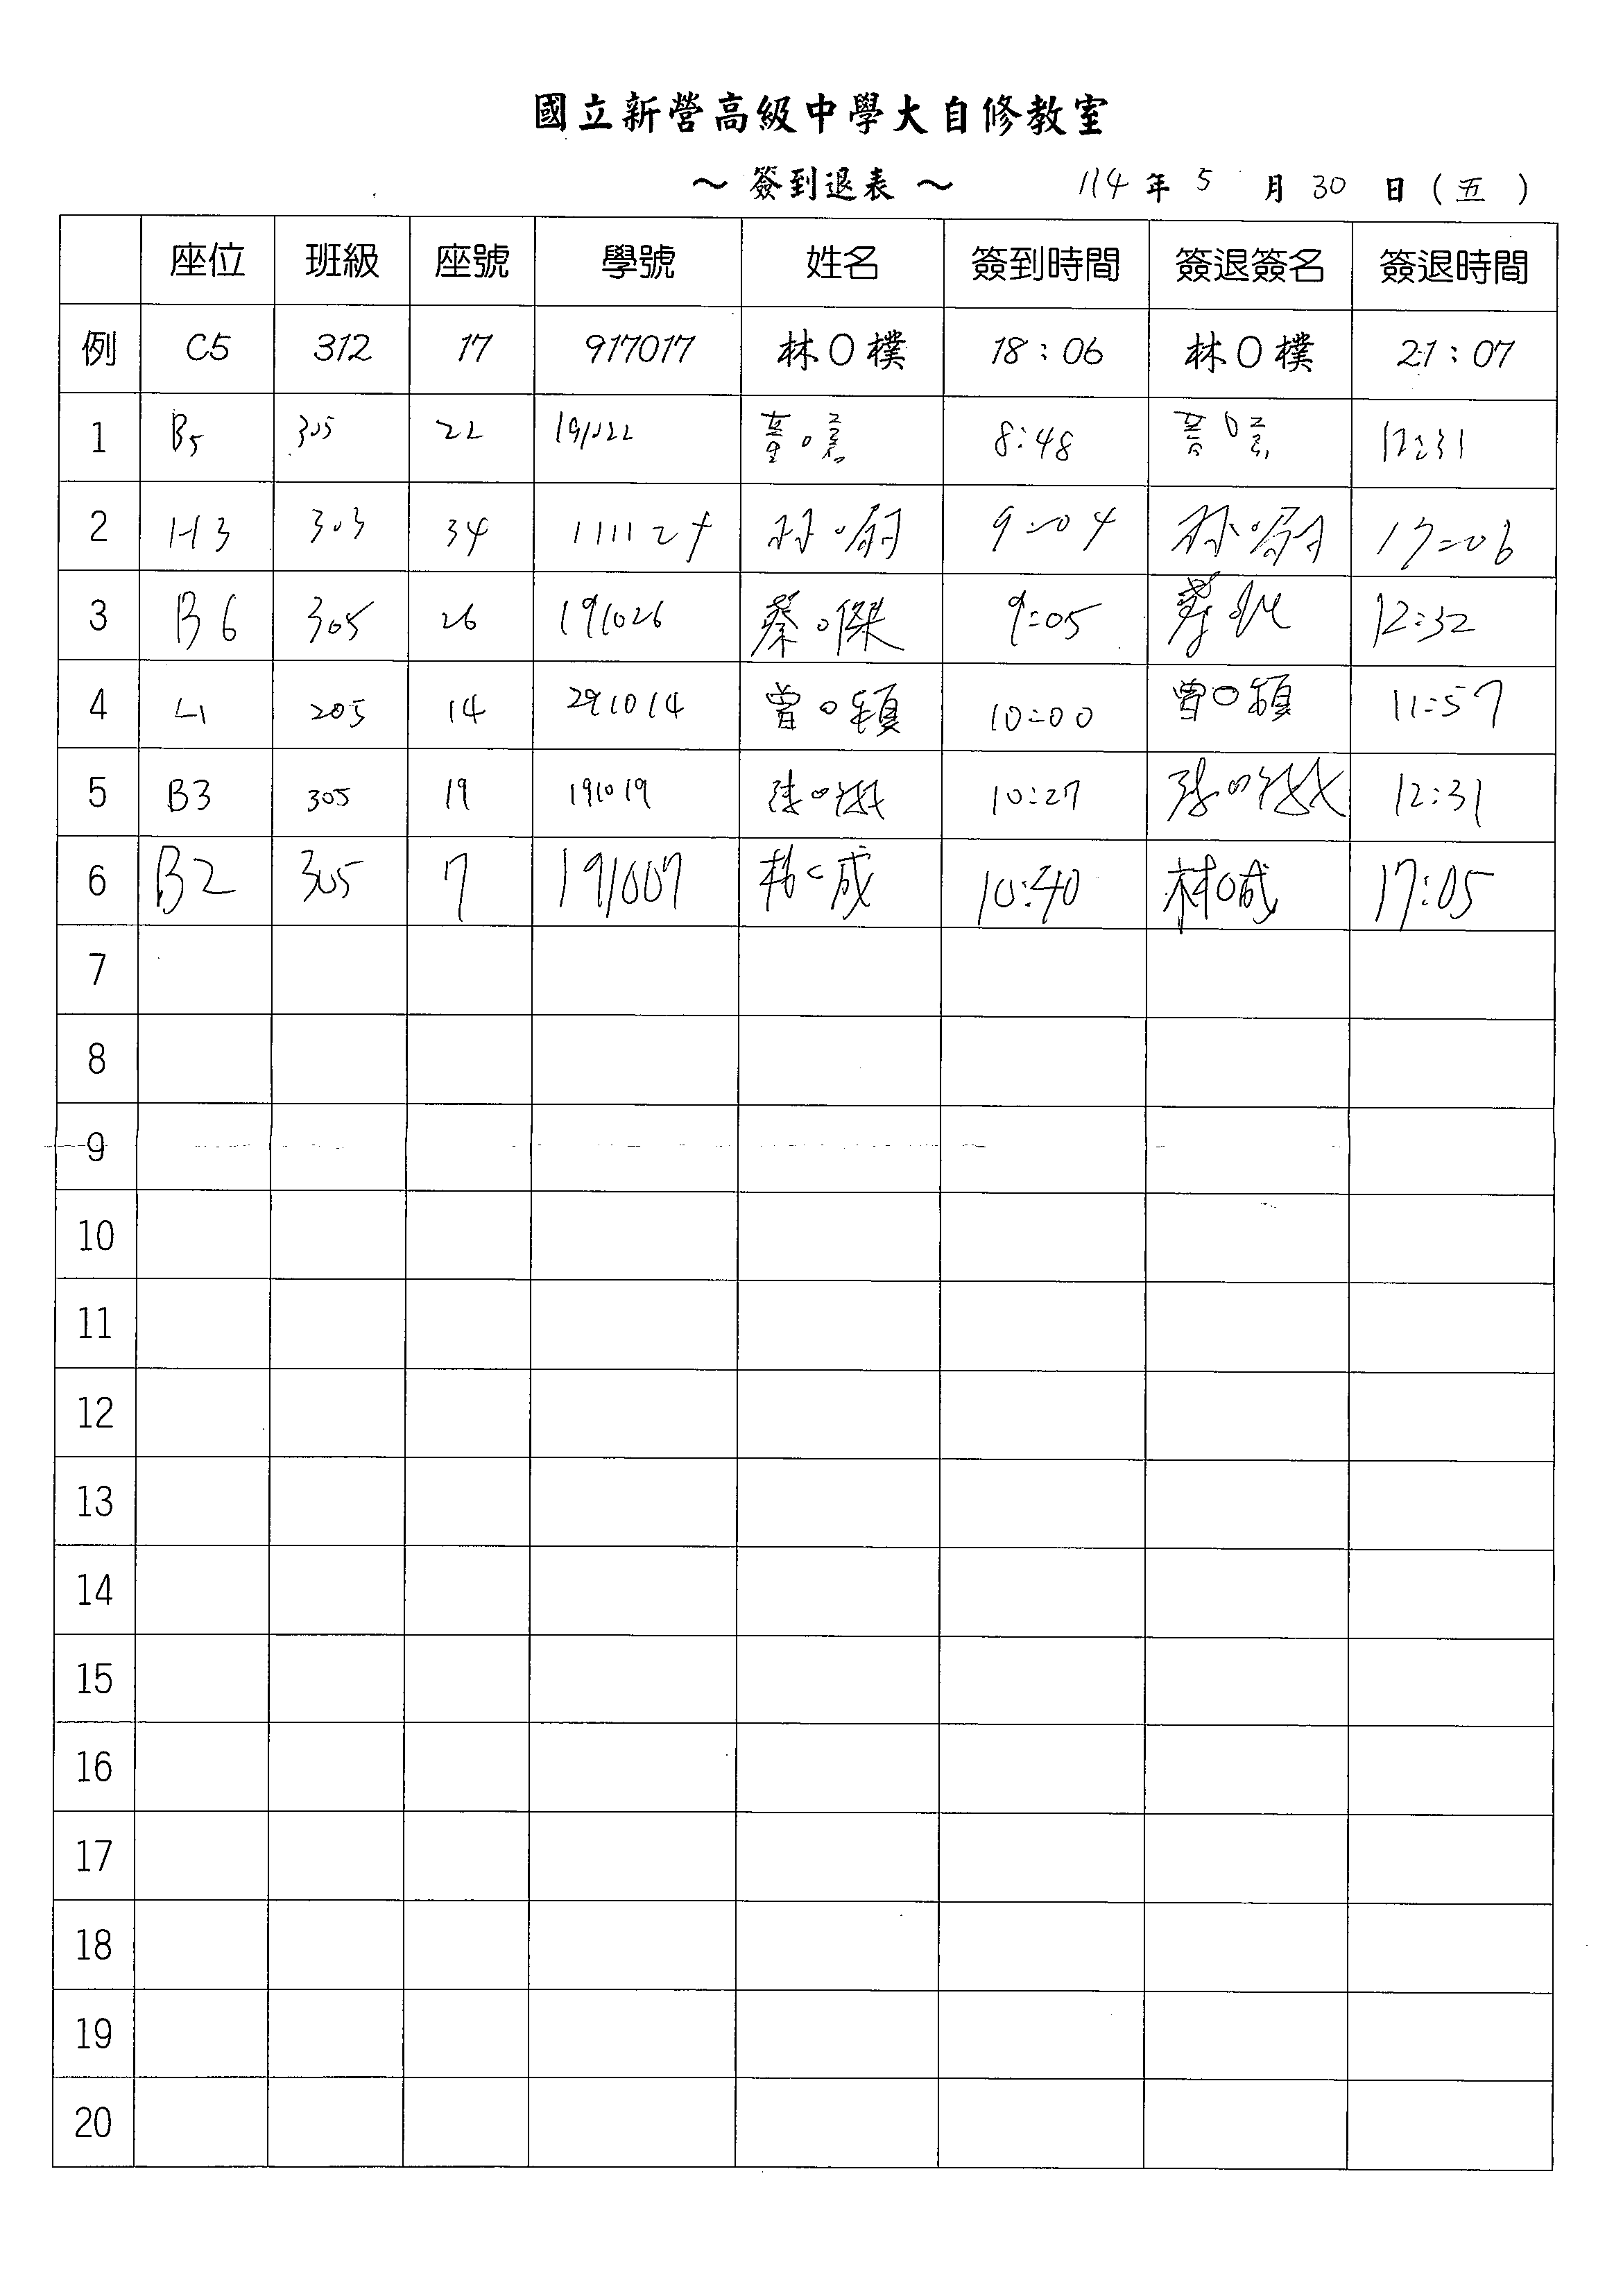 國立新營高級中學大自修教室
～ 簽到退表 ～ 114 年 5 月 30 日 ( 五 )
座位 班級 座號 學號 姓名 簽到時間 簽退簽名 簽退時間
例 C5 312 17 917017 林O樸 18:06 林O樸 21:07
1 B5 305 22 191022 8:48 12:31
2 H3 303 34 林 9:04 林 17:06
3 B6 305 26 191026 蔡O傑 9:05 蔡 12:32
4 205 14 291014 曾O穎 10:00 曾O穎 11:57
5 B3 305 19 191019 10:27 12:31
6 B2 305 7 191007 10:40 17:05
7
8
9
10
11
12
13
14
15
16
17
18
19
20